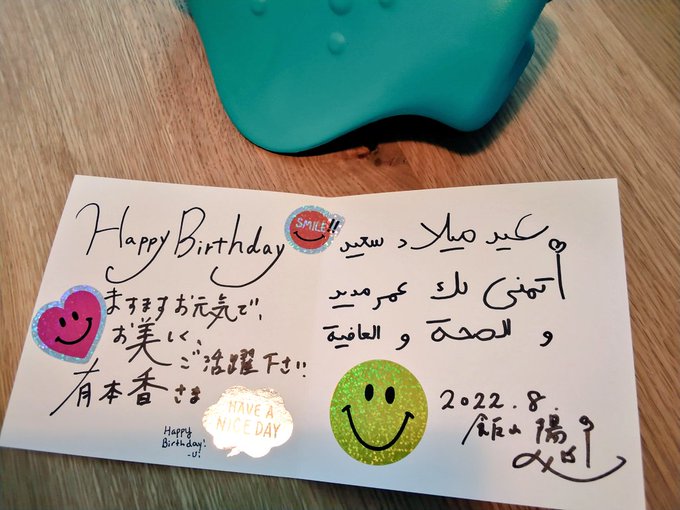 Happy Birthday
SMILE!!
ますますお元気で、
お美しく、
ご活躍下さい!
有本香さま
HAVE A
NICE DAY
Happy
Birthday!
-U!
عيد ميلاد سعيد
أتمنى لك عمر مديد
و الصحة و العافية
2022.8.
飯山陽